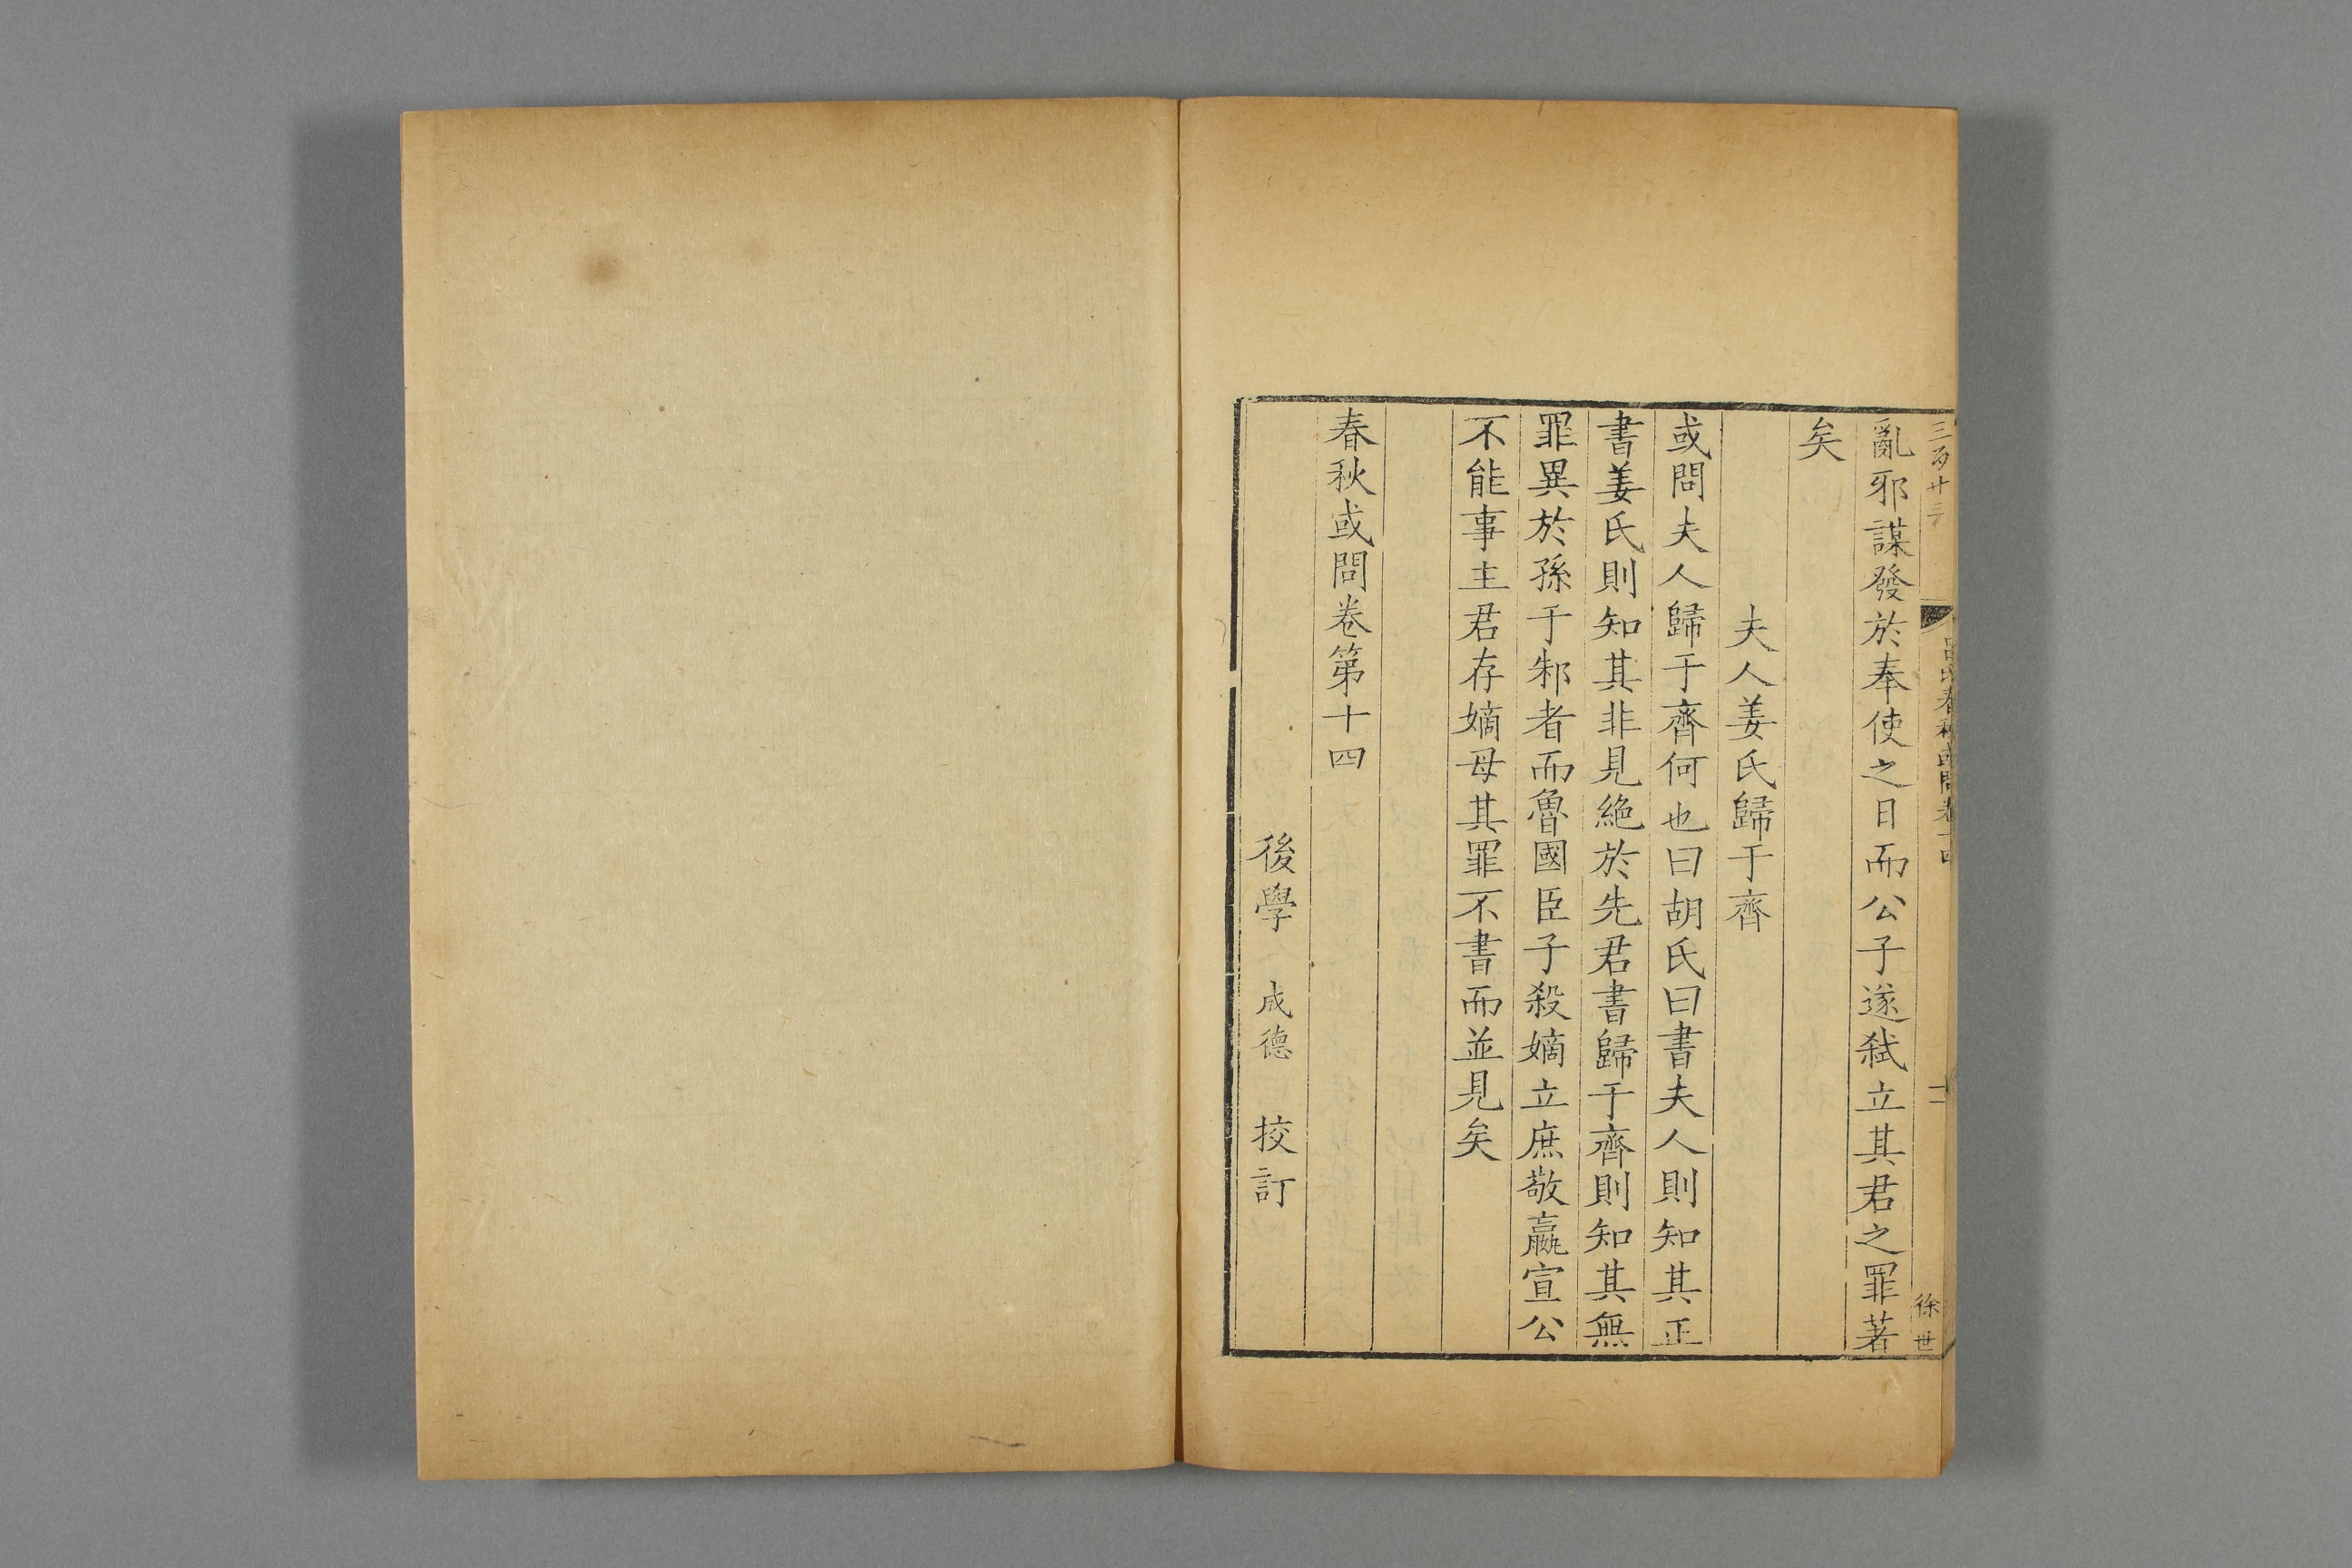 三百廿三
呂氏春秋或問卷十四
十一
徐世
亂邪謀發於奉使之日而公子遂弑立其君之罪著
矣
夫人姜氏歸于齊
或問夫人歸于齊何也曰胡氏曰書夫人則知其正
書姜氏則知其非見絶於先君書歸于齊則知其無
罪異於孫于邾者而魯國臣子殺嫡立庶敬嬴宣公
不能事主君存嫡母其罪不書而並見矣
春秋或問卷第十四
後學 成德 挍訂